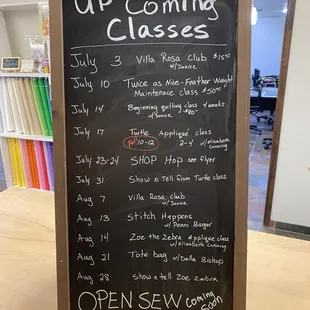 UP Coming
Classes
July 3 Villa Rosa Club $15⁰⁰
w/Janice
July 10 Twice as Nice-Feather Weight
Maintenace class $50⁰⁰
July 14 Beginning quilting class 4 weeks
w/Janice $80⁰⁰
July 17 Turtle Appliqué class
10-12 2-4 w/Elisabeth
Cunning
July 23-24 SHOP Hop see flyer
July 31 Show n Tell from Turtle class
Aug 7 Villa Rosa club
w/Janice
Aug 13 Stitch Happens
w/Penni Barger
Aug 14 Zoe the Zebra Applique class
w/Elisabeth Cunning
Aug 21 Tote bag w/Dalla Bishop
Aug 28 Show n tell Zoe Zebra
OPEN SEW Coming
Soon